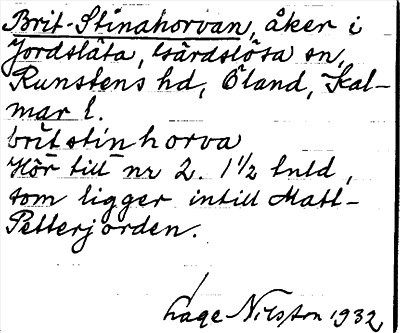 Brit-Stinahorvan, åker i
Jordslåta, Gärdslösa sn,
Runstens hd, Öland, Kal-
mar l.
britstinhorva
Hör till nr 2. 1 1/2 tnld,
som ligger intill Matt-
Petterjorden.
Lage Nilsson 1932